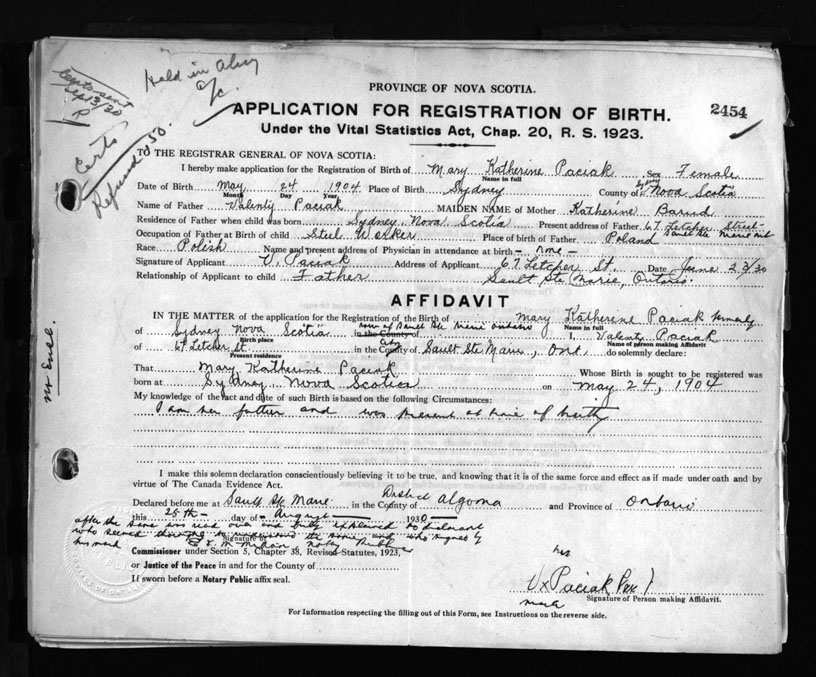 Held in Abey
a/c.
Certs sent
Sep 13/30
P
Certs
Refund .50.
PROVINCE OF NOVA SCOTIA.
2454
APPLICATION FOR REGISTRATION OF BIRTH.
Under the Vital Statistics Act, Chap. 20, R. S. 1923.
TO THE REGISTRAR GENERAL OF NOVA SCOTIA:
I hereby make application for the Registration of Birth of Mary Katherine Paciak Sex Female
Name in full
Date of Birth May 24 1904 Place of Birth Sydney County of Nova Scotia
Month Day Year
Name of Father Valenty Paciak MAIDEN NAME of Mother Katherine
Residence of Father when child was born Sydney, Nova Scotia Present address of Father 67 Letcher Street
Occupation of Father at Birth of child Steel Worker Place of birth of Father Poland Sault Ste Marie Ont
Race Polish Name and present address of Physician in attendance at birth - none -
Signature of Applicant V. Paciak Address of Applicant 67 Letcher St. Date June 23/30
Relationship of Applicant to child Father Sault Ste Marie, Ontario.
AFFIDAVIT
IN THE MATTER of the application for the Registration of the Birth of Mary Katherine Paciak formerly
Name in full
of Sydney Nova Scotia in the County of now of Sault Ste Marie Ontario I, Valenty Paciak
Birth place Name of person making Affidavit
of 67 Letcher St. in the County of City Sault Ste Marie, Ont. do solemnly declare:
Present residence
That Mary Katherine Paciak Whose Birth is sought to be registered was
born at Sydney, Nova Scotia on May 24, 1904
My knowledge of the fact and date of such Birth is based on the following Circumstances:
I am her father and was present at time of birth
No Encl.
I make this solemn declaration conscientiously believing it to be true, and knowing that it is of the same force and effect as if made under oath and by
virtue of The Canada Evidence Act.
Declared before me at Sault Ste Marie in the County District Algoma and Province of Ontario
this 25th day of August 1930
after the same was read over and fully explained to declarant
who seemed to understand the same and who signed by
his mark
Signature of
Commissioner under Section 5, Chapter 38, Revised Statutes, 1923,
or Justice of the Peace in and for the County of
If sworn before a Notary Public affix seal.
his
V x Paciak
mark
Signature of Person making Affidavit.
For Information respecting the filling out of this Form, see Instructions on the reverse side.